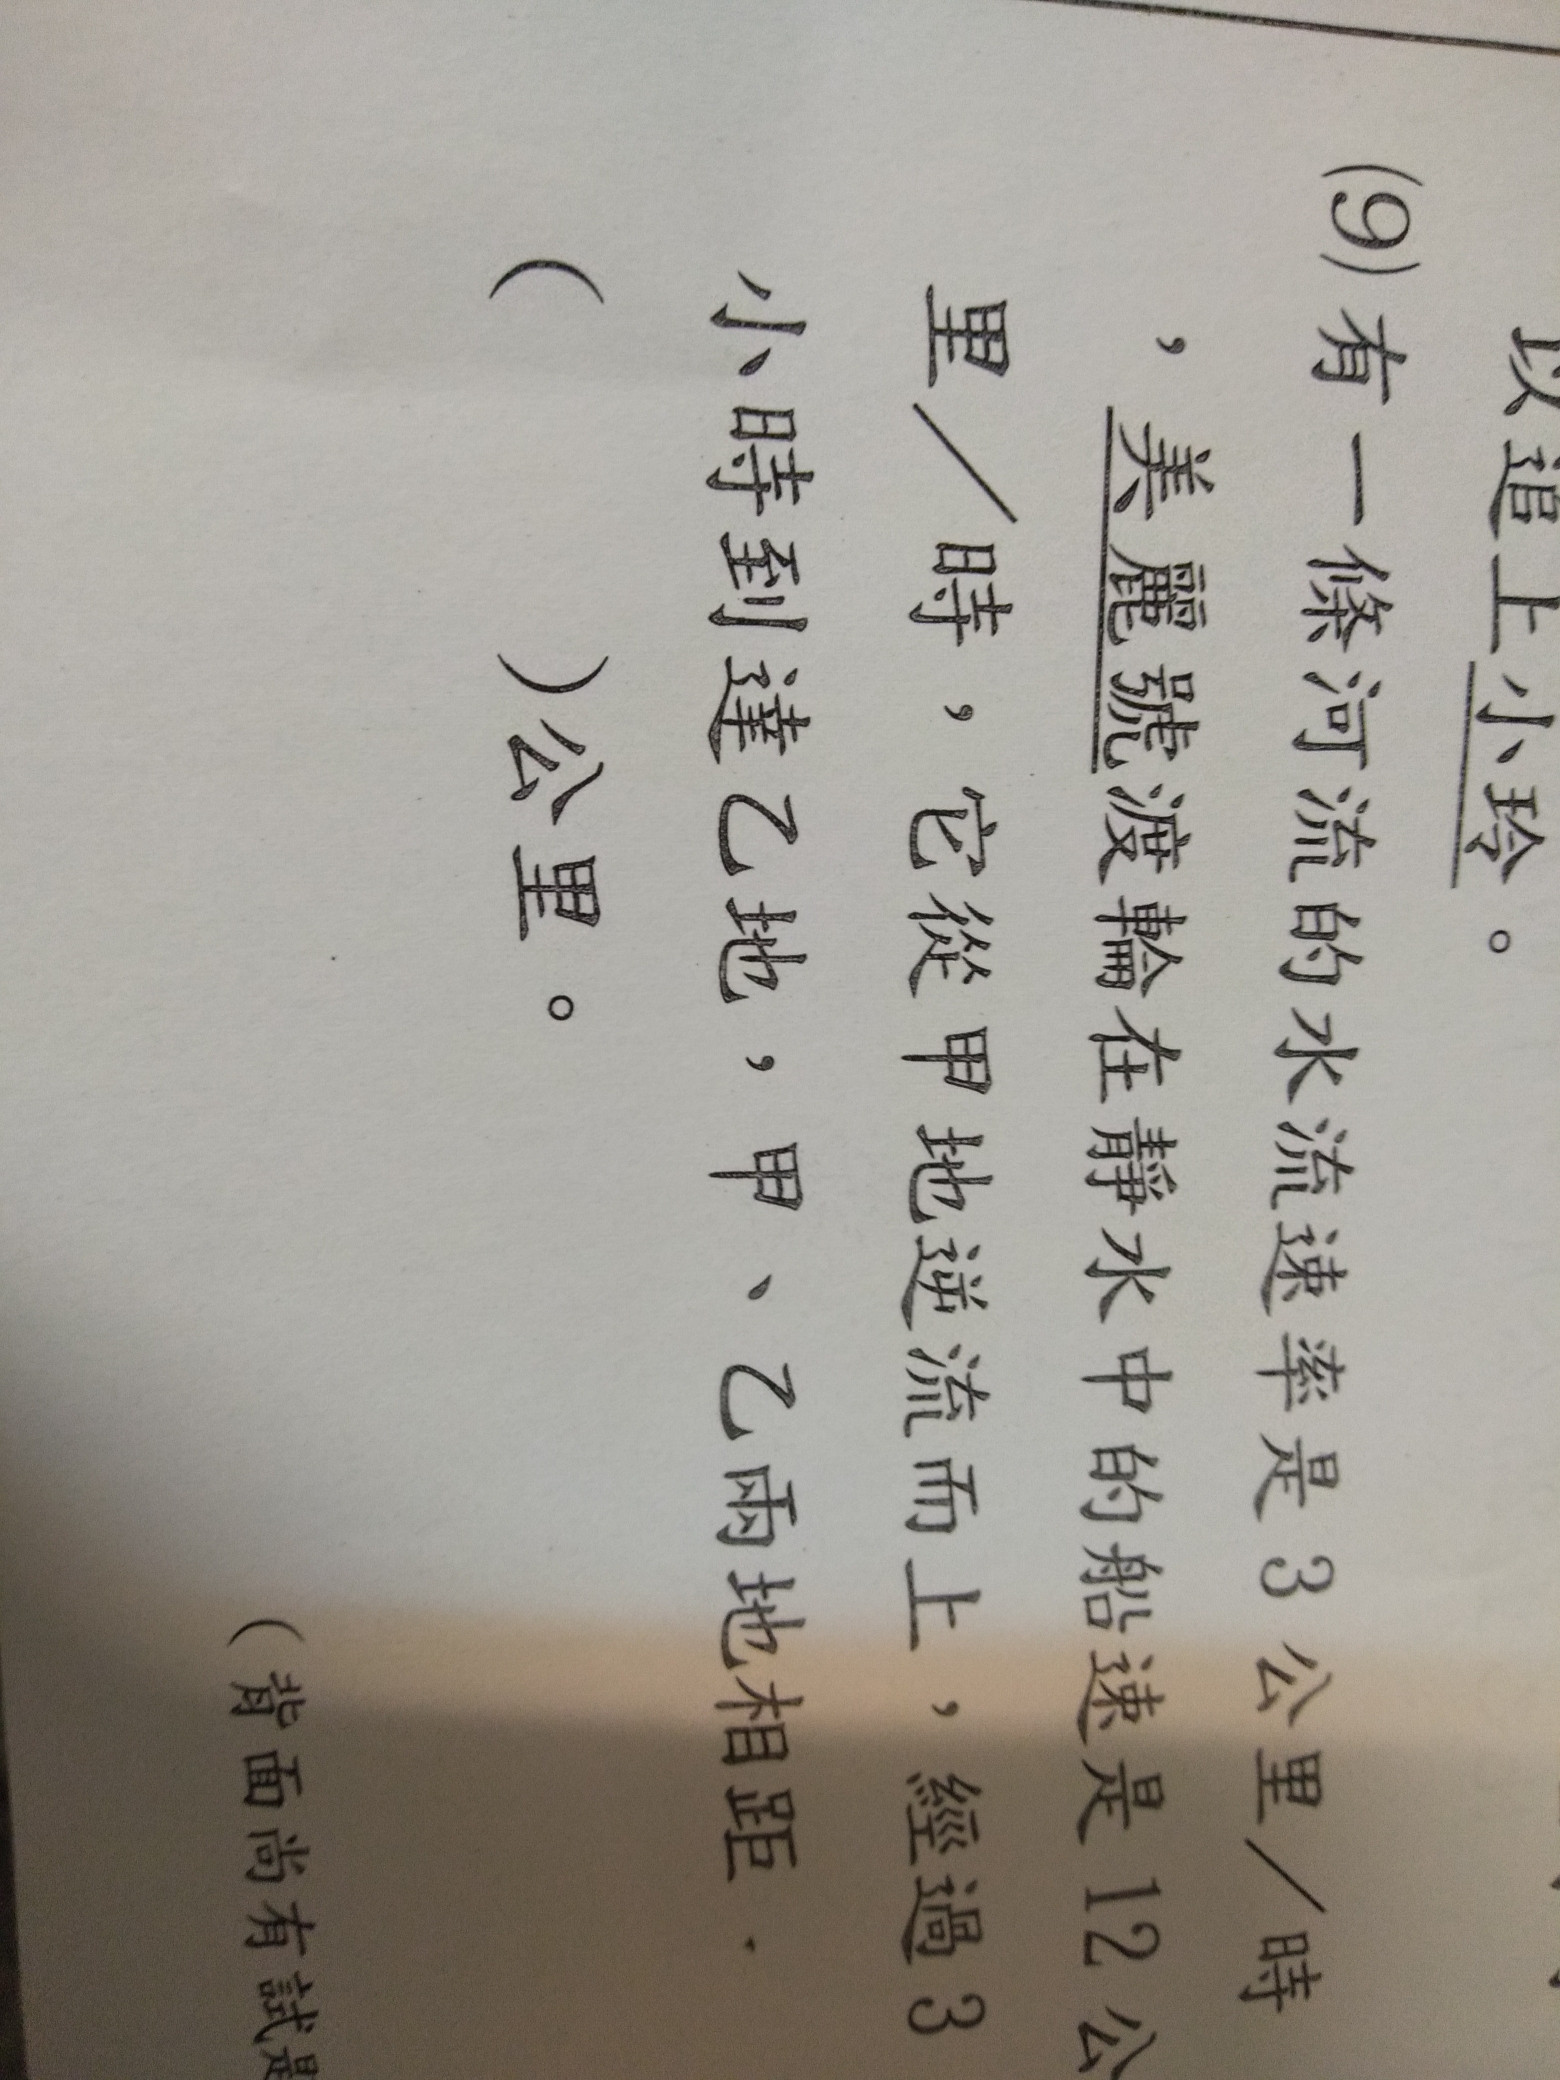 以追上小玲。
(9)有一條河流的水流速率是3公里／時
，美麗號渡輪在靜水中的船速是12公
里／時，它從甲地逆流而上，經過3
小時到達乙地，甲、乙兩地相距
(　　　)公里。
(背面尚有試題